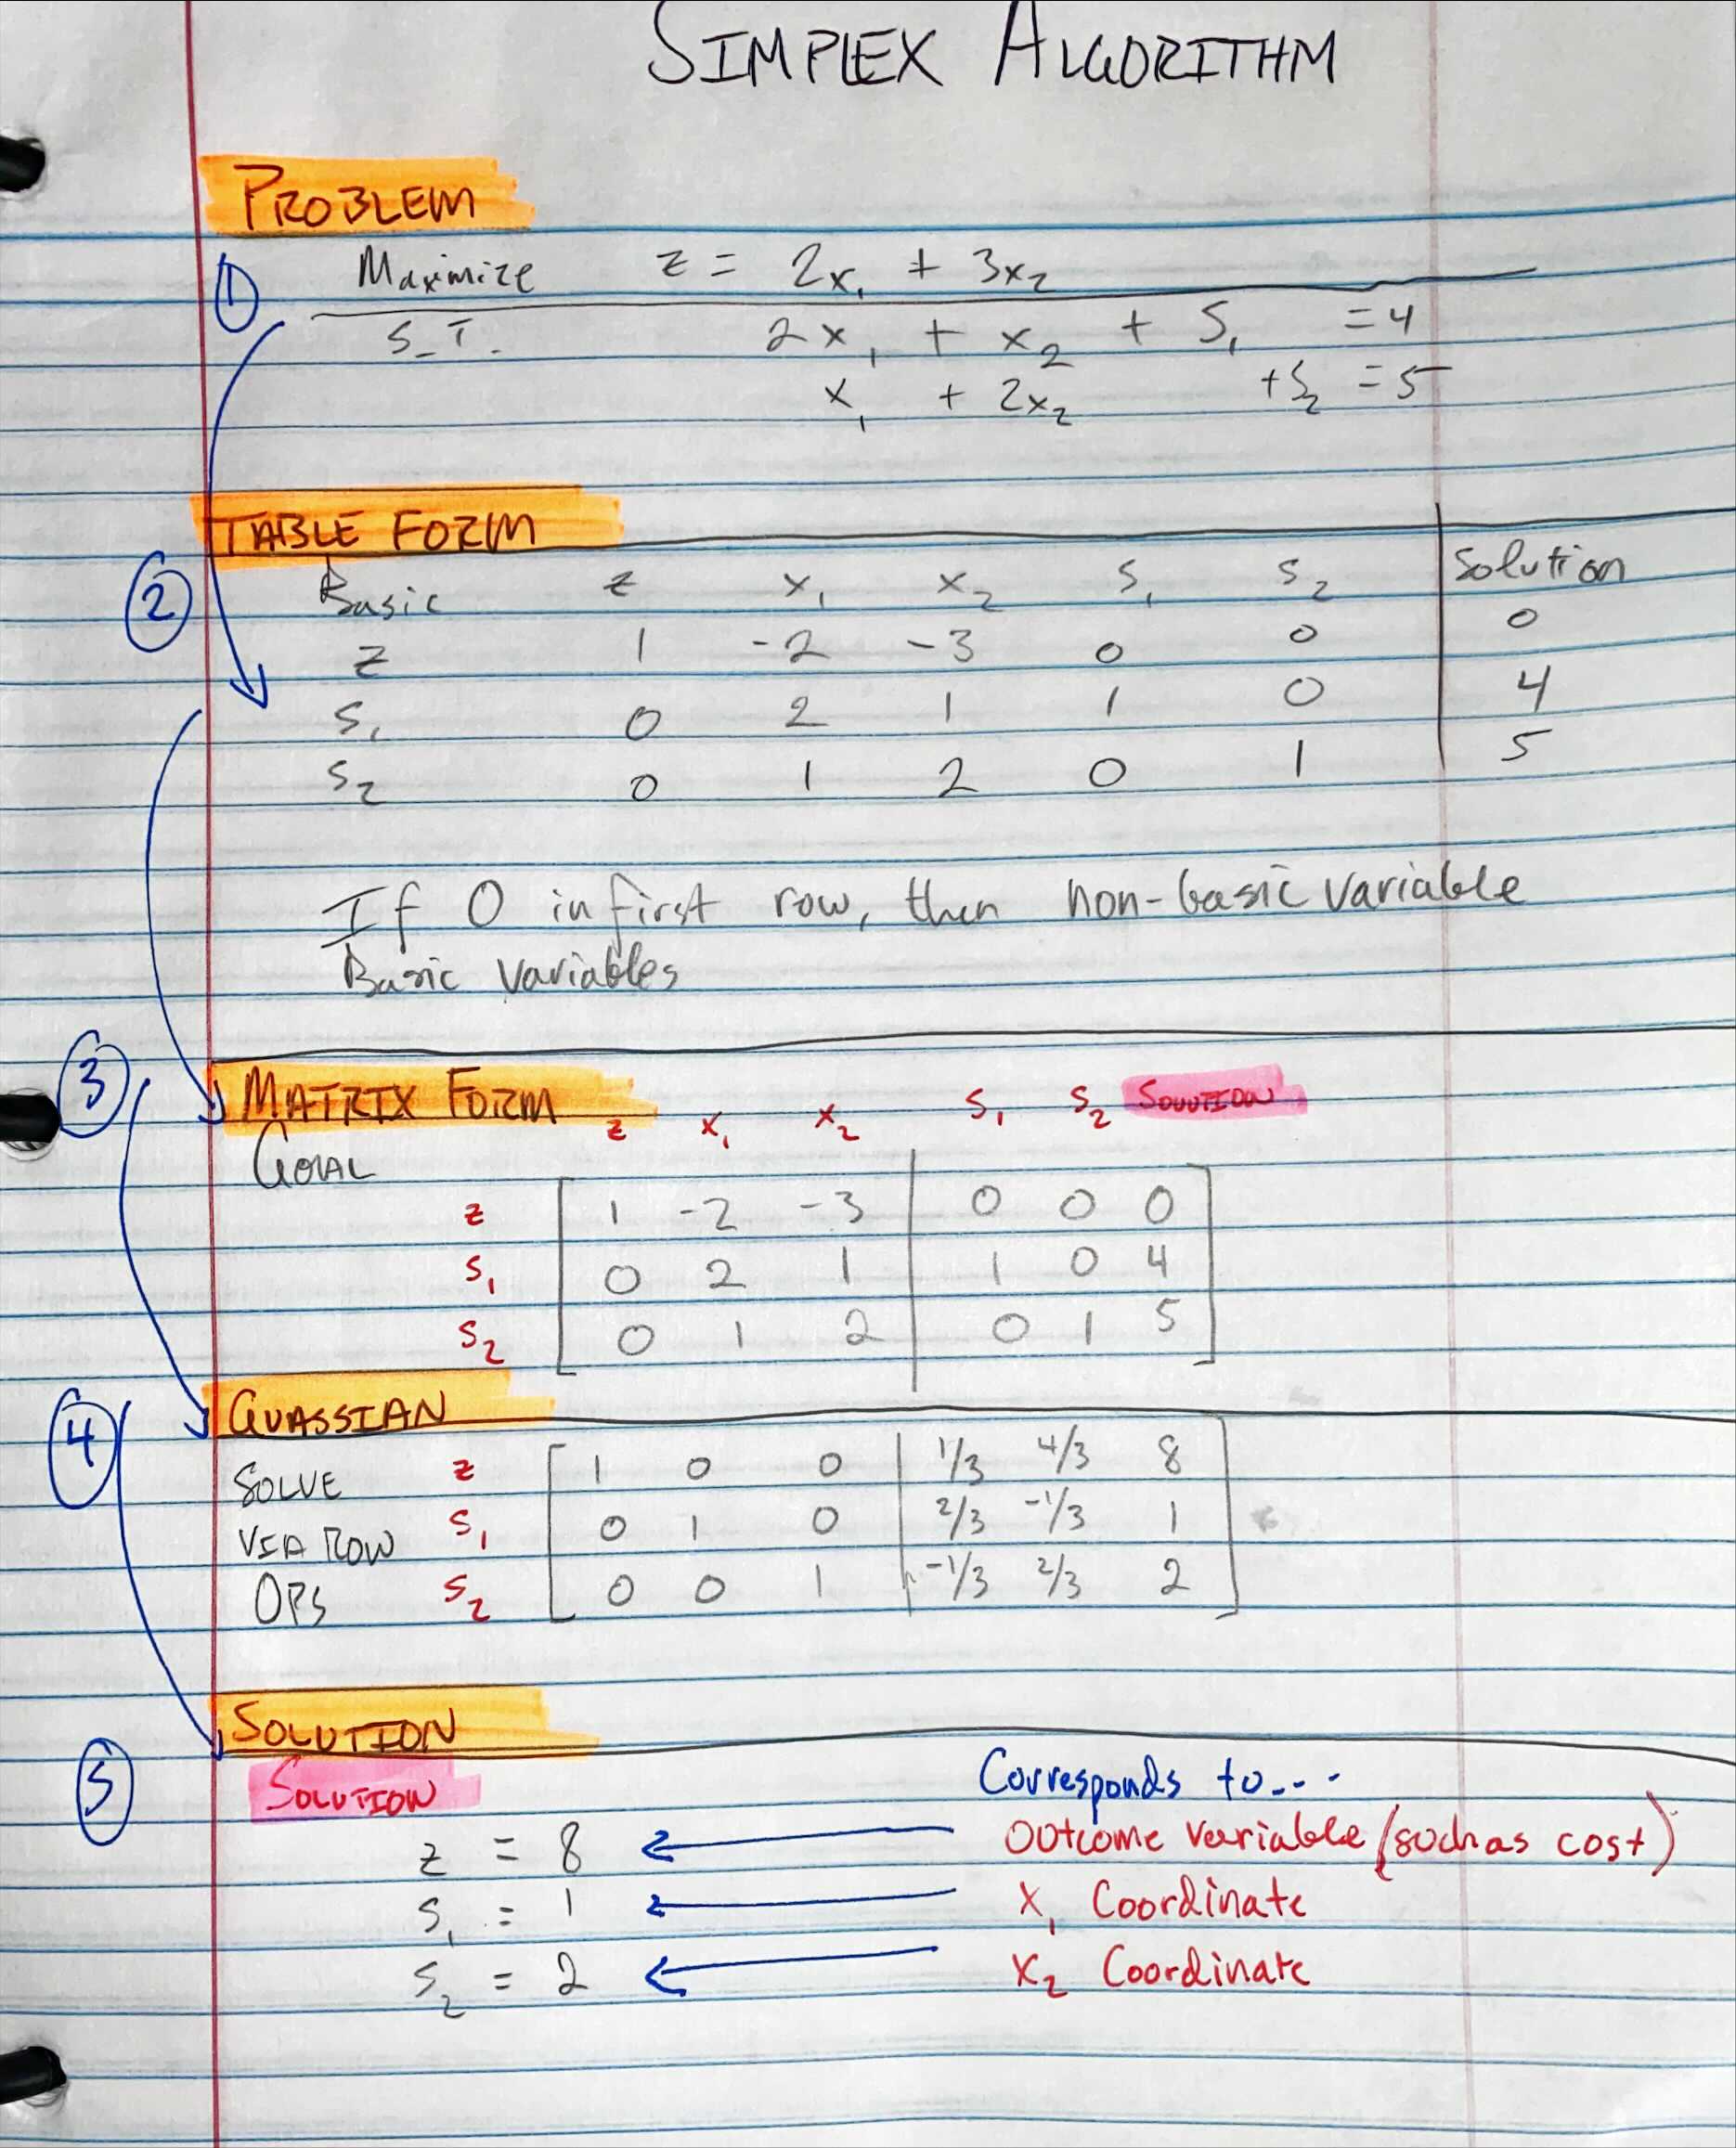 SIMPLEX ALGORITHM
PROBLEM
① Maximize z = 2x₁ + 3x₂
S.T. 2x₁ + x₂ + S₁ = 4
x₁ + 2x₂ + S₂ = 5
TABLE FORM
② Basic z x₁ x₂ S₁ S₂ Solution
z 1 -2 -3 0 0 0
S₁ 0 2 1 1 0 4
S₂ 0 1 2 0 1 5
If 0 in first row, then non-basic variable
Basic variables
③ MATRIX FORM z x₁ x₂ S₁ S₂ SOLUTION
GOAL
z 1 -2 -3 0 0 0
S₁ 0 2 1 1 0 4
S₂ 0 1 2 0 1 5
④ GUASSIAN
SOLVE z 1 0 0 1/3 4/3 8
VIA ROW S₁ 0 1 0 2/3 -1/3 1
OPS S₂ 0 0 1 -1/3 2/3 2
SOLUTION
⑤ SOLUTION Corresponds to...
z = 8 ← Outcome variable (such as cost)
S₁ = 1 ← X₁ Coordinate
S₂ = 2 ← X₂ Coordinate